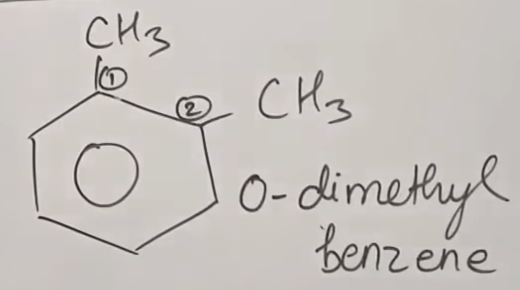 CH3
1
2 CH3
O-dimethyl
benzene